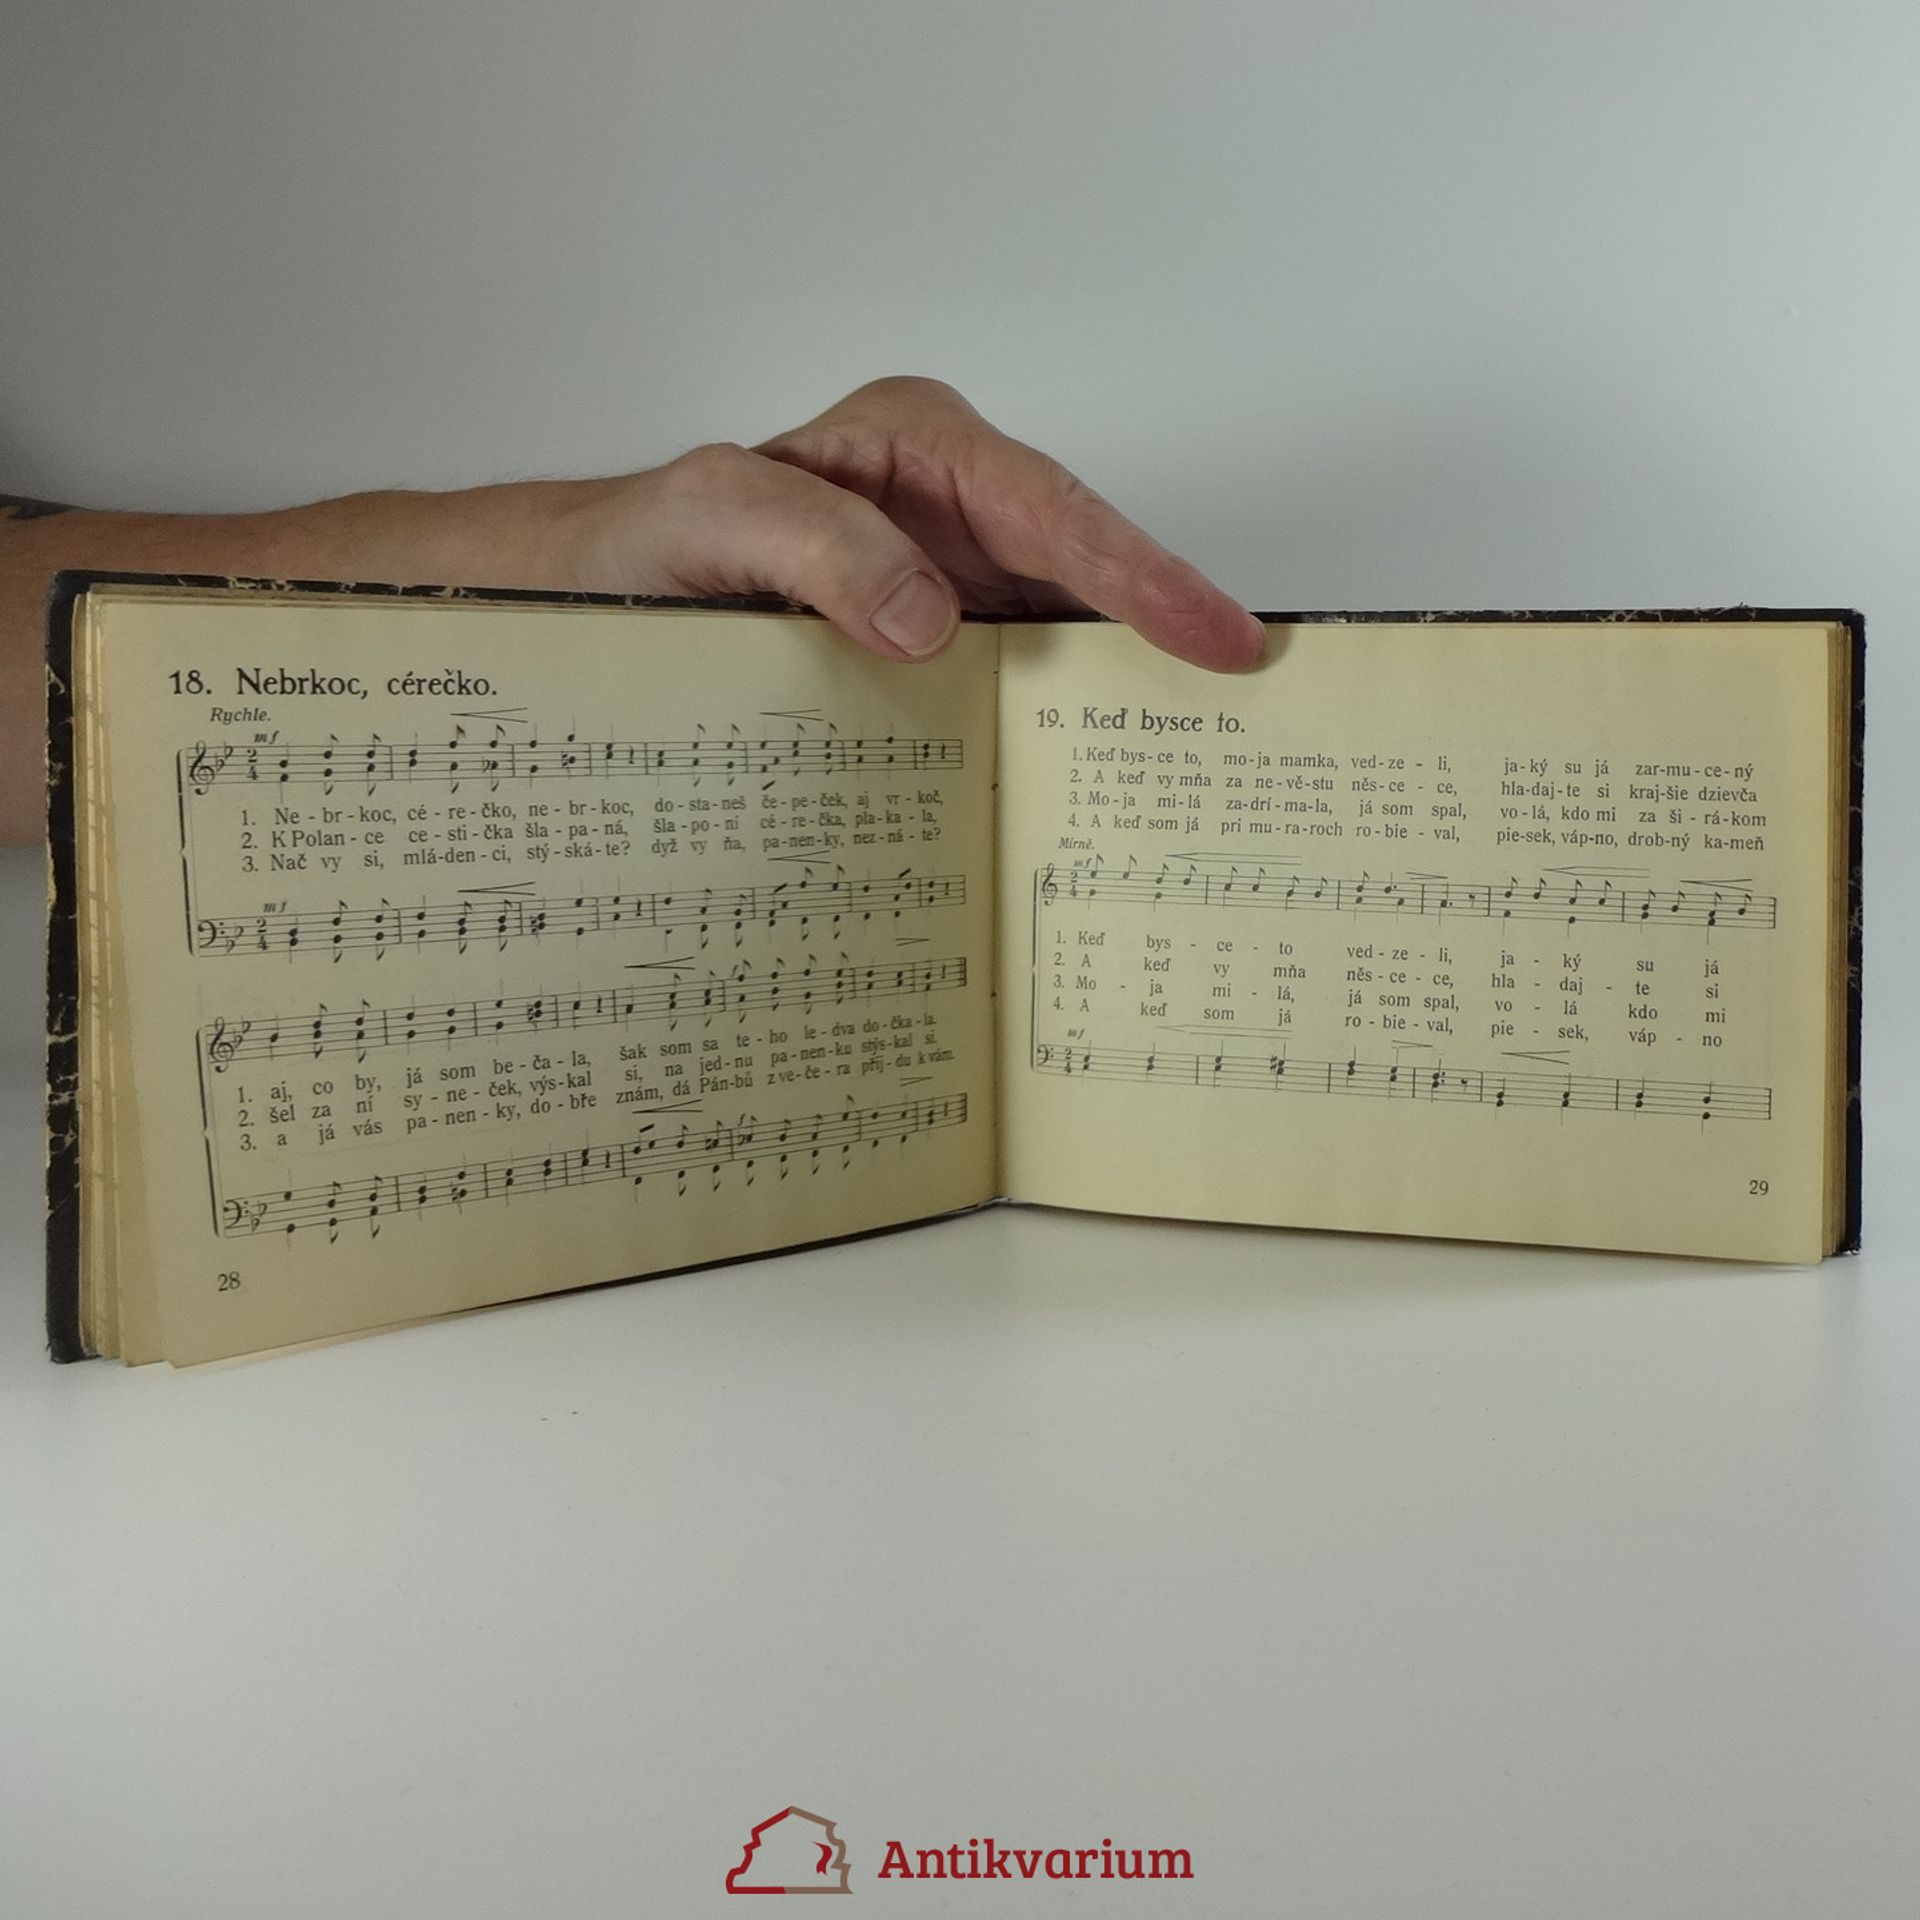 18. Nebrkoc, cérečko.
Rychle.
mf
1. Ne - br - koc, cé - re - čko, ne - br - koc, do - sta - neš če - pe - ček, aj vr - koč,
2. K Polan - ce ce - sti - čka šla - pa - ná, šla - po - ní cé - re - čka, pla - ka - la,
3. Nač vy si, mlá-den - ci, stý - ská - te? dyž vy ňa, pa - nen - ky, nez - ná - te?
mf
f
1. aj, co by, já som be - ča - la, šak som sa te - ho le - dva do - čka - la.
2. šel za ní sy - ne - ček, výs - kal si, na jed - nu pa - nen - ku stýs - kal si.
3. a já vás pa - nen - ky, do - bře znám, dá Pán-bů z ve - če - ra příj - du k vám.
f
28
19. Keď bysce to.
1. Keď bys - ce to, mo - ja mamka, ved - ze - li, ja - ký su já zar - mu - ce - ný
2. A keď vy mňa za ne - vě - stu něs - ce - ce, hla - daj - te si kraj - šie dzievča
3. Mo - ja mi - lá za - drí - ma - la, já som spal, vo - lá, kdo mi za ši - rá - kom
4. A keď som já pri mu - ra - roch ro - bie - val, pie - sek, váp - no, drob - ný ka - meň
Mírně.
mf
1. Keď bys - ce - to ved - ze - li, ja - ký su já
2. A keď vy mňa něs - ce - ce, hla - daj - te si
3. Mo - ja mi - lá, já som spal, vo - lá kdo mi
4. A keď som já ro - bie - val, pie - sek, váp - no
mf
29
Antikvarium